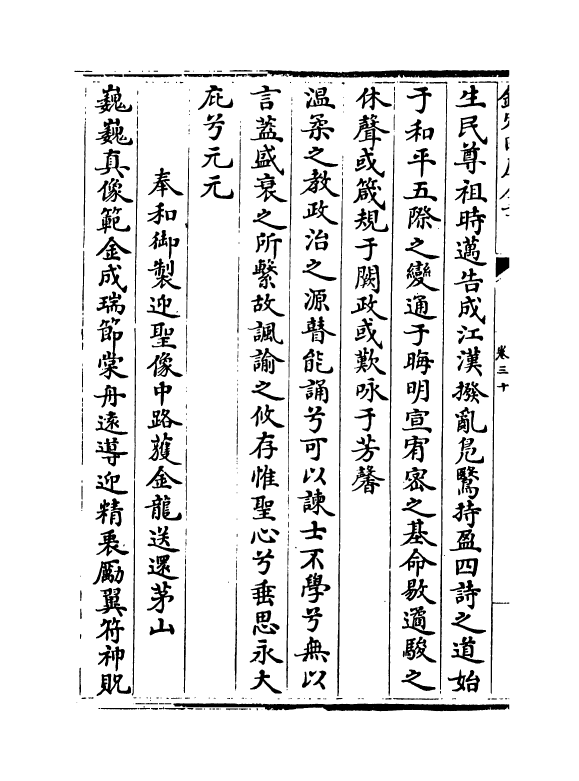 卷三十
生民尊祖時邁告成江漢撥亂鳧鷖持盈四詩之道始
于和平五際之變通于晦明宣宥宓之基命敭遹駿之
休聲或箴規于闕政或歎咏于芳馨
溫柔之教政治之源瞽能誦兮可以諫士不學兮無以
言葢盛衰之所繫故諷諭之攸存惟聖心兮垂思永大
庇兮元元
奉和御製迎聖像中路蒦金龍送還茅山
巍巍真像範金成瑞節棠舟遠導迎精裹勵翼符神貺